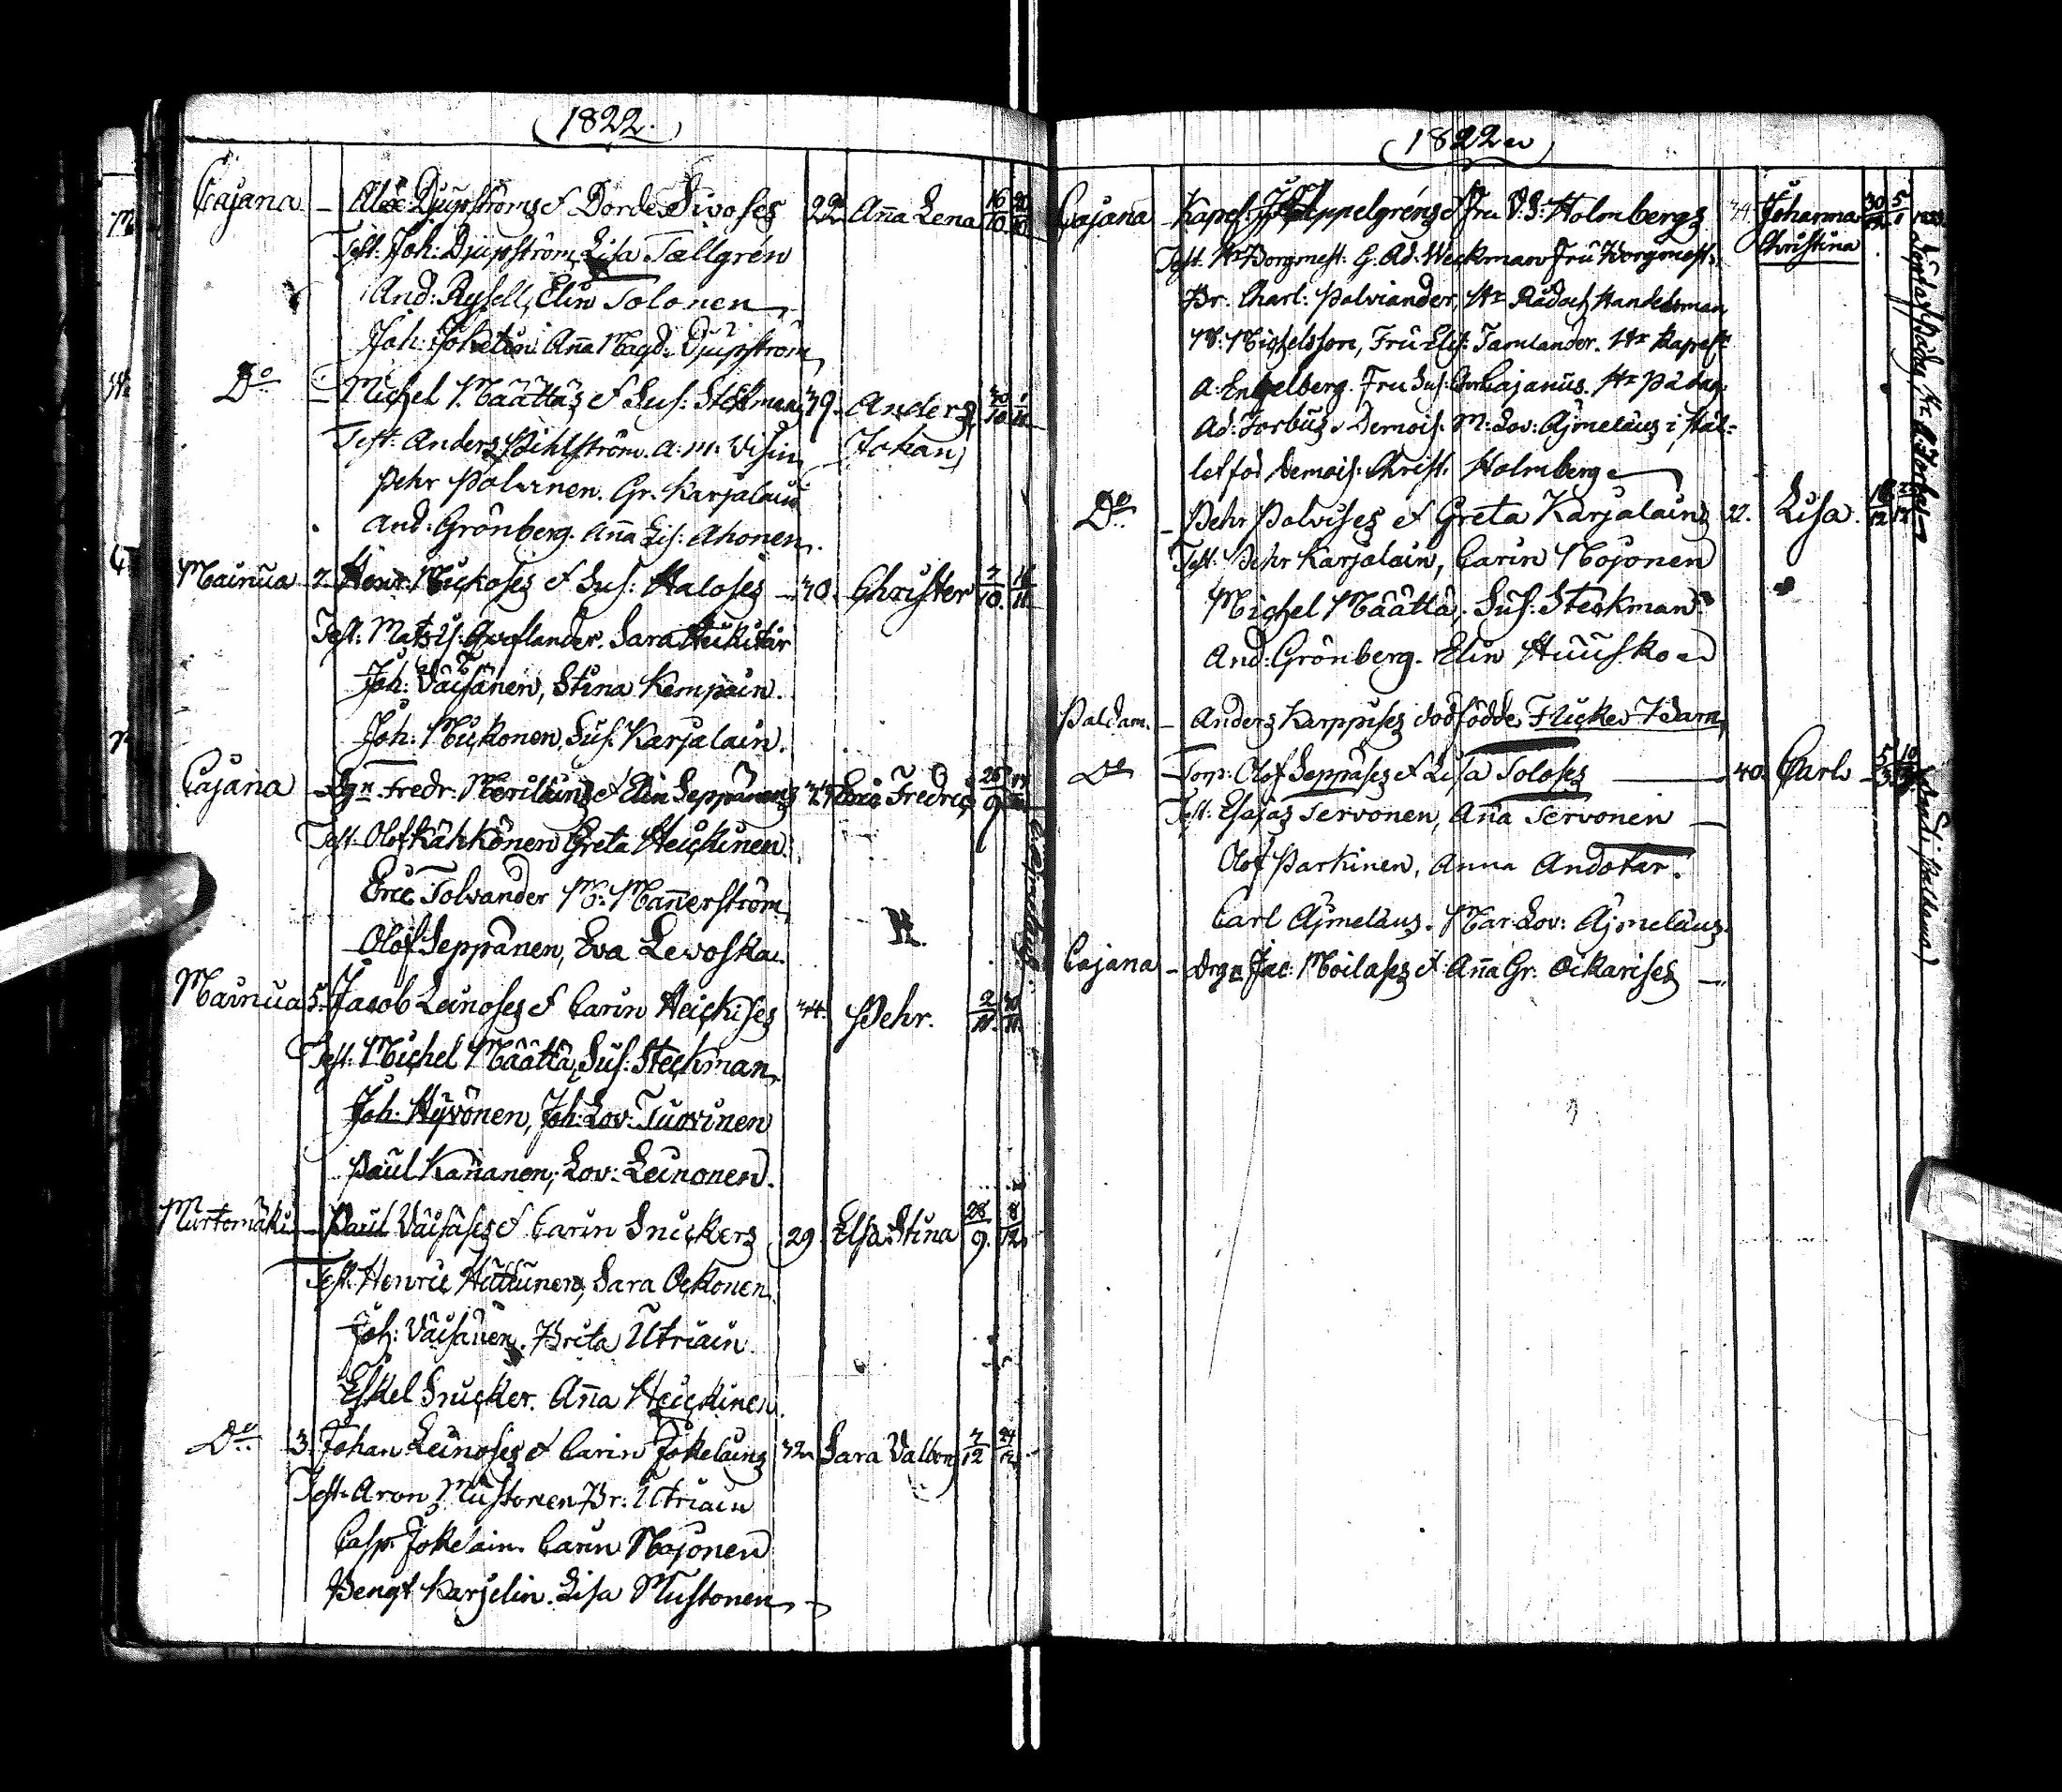 1822.
Cajana - Alex: Djupströms & Dordei Sivoses 22. Aña Lena 16/10 20/10
Test: Joh: Djupström, Lisa Tallgrén
And: Rysell, Elin Tolonen
Joh: Aña Magd: Djupström
Do - Michel Määttäs & Sus: Steckmans 39. Anders 30/10 1/11
Test: Anders Pihlström. A: M: Johan
Pehr Polvinen. Gr: Karjalain
And: Grönberg. Aña Lis: Ahonen.
Mainua 7. Henr: Mickoses & Sus: Haloses - 30. Christer 7/10. 16/11
Test: Mats Sara Heickitär
Joh: Väisänen, Stina Kempain.
Joh: Muckonen, Sus: Karjalain.
Cajana - Dgn Fredr: Meriläins & Elin Seppänens Eric Fredric 26/9
Test: Olof Kähkönen Greta Heickinen.
Eric Tolvander M: Mañerström
Olof Seppänen, Eva Levoska.
Mainua 5. Jacob Leinoses & Carin Heickises 34. Pehr. 2/11. 30/11
Test: Michel Määttä, Sus: Steckman
Joh: Hyvönen, Joh: Lov: Tuovinen
Paul Kañanen, Lov: Leinonen.
Murtomäki - Paul Väisäses & Carin Snickers 29. Elsa Stina 28/9. 8/12
Test: Henric Huttunen, Sara Ockonen.
Joh: Väisänen. Brita Utriain
Eskel Snicker. Aña Heickinen.
Do 3. Johan Leinoses & Carin Jokelains 32 Sara Valbor 7/12 24/12
Test: Aron Mustonen Br: Utriain
Casp: Jokelain. Carin Mojonen
Bengt Karjelin. Lisa Mustonen
1822
Cajana - Kapel: J: Appelgréns & Fru U: S: Holmbergs 34. Johanna 30/12 5/1 1823
Test: Hr Borgmest: G: Ad: Weckman Fru Borgmest: Christina
Br: Charl: Polviander, Hr Råd och Handelsman
M: Michelsson, Fru Elis: Tamlander. Hr Kapel:
A: Engelberg. Fru Sus: Cajanus. Hr Pädag:
Ad: Forbus. Demois: M: Lov: Äjmeläus i stäl-
let för Demois: Christ: Holmberg
Do - Pehr Polvises & Greta Karjalains 22. Lisa.
Test: Pehr Karjalain, Carin Mojonen
Michel Määttä, Sus: Steckman
And: Grönberg. Elin Huusko
Paldam. - Anders Karppises dödfödde Flicke Barn
Do - Torp: Olof Seppäses & Lisa Toloses 40. Carl
Test: Esajas Tervonen, Aña Tervonen
Olof Parkinen, Anna Andotar.
Carl Äjmeläus. Mar: Lov: Äjmeläus.
Cajana - Drgn Jac: Moilases & Aña Gr: Ockarises